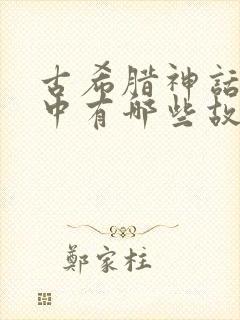 古希腊神話
中有哪些故
鄭家柱